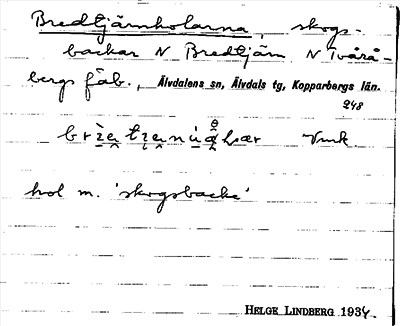 Bredtjärnholarna, skogs-
backar N Bredtjärn N Tvärå-
bergs fäb., Älvdalens sn, Älvdals tg, Kopparbergs län.
248
hol m. 'skogsbacke'
HELGE LINDBERG 1934.